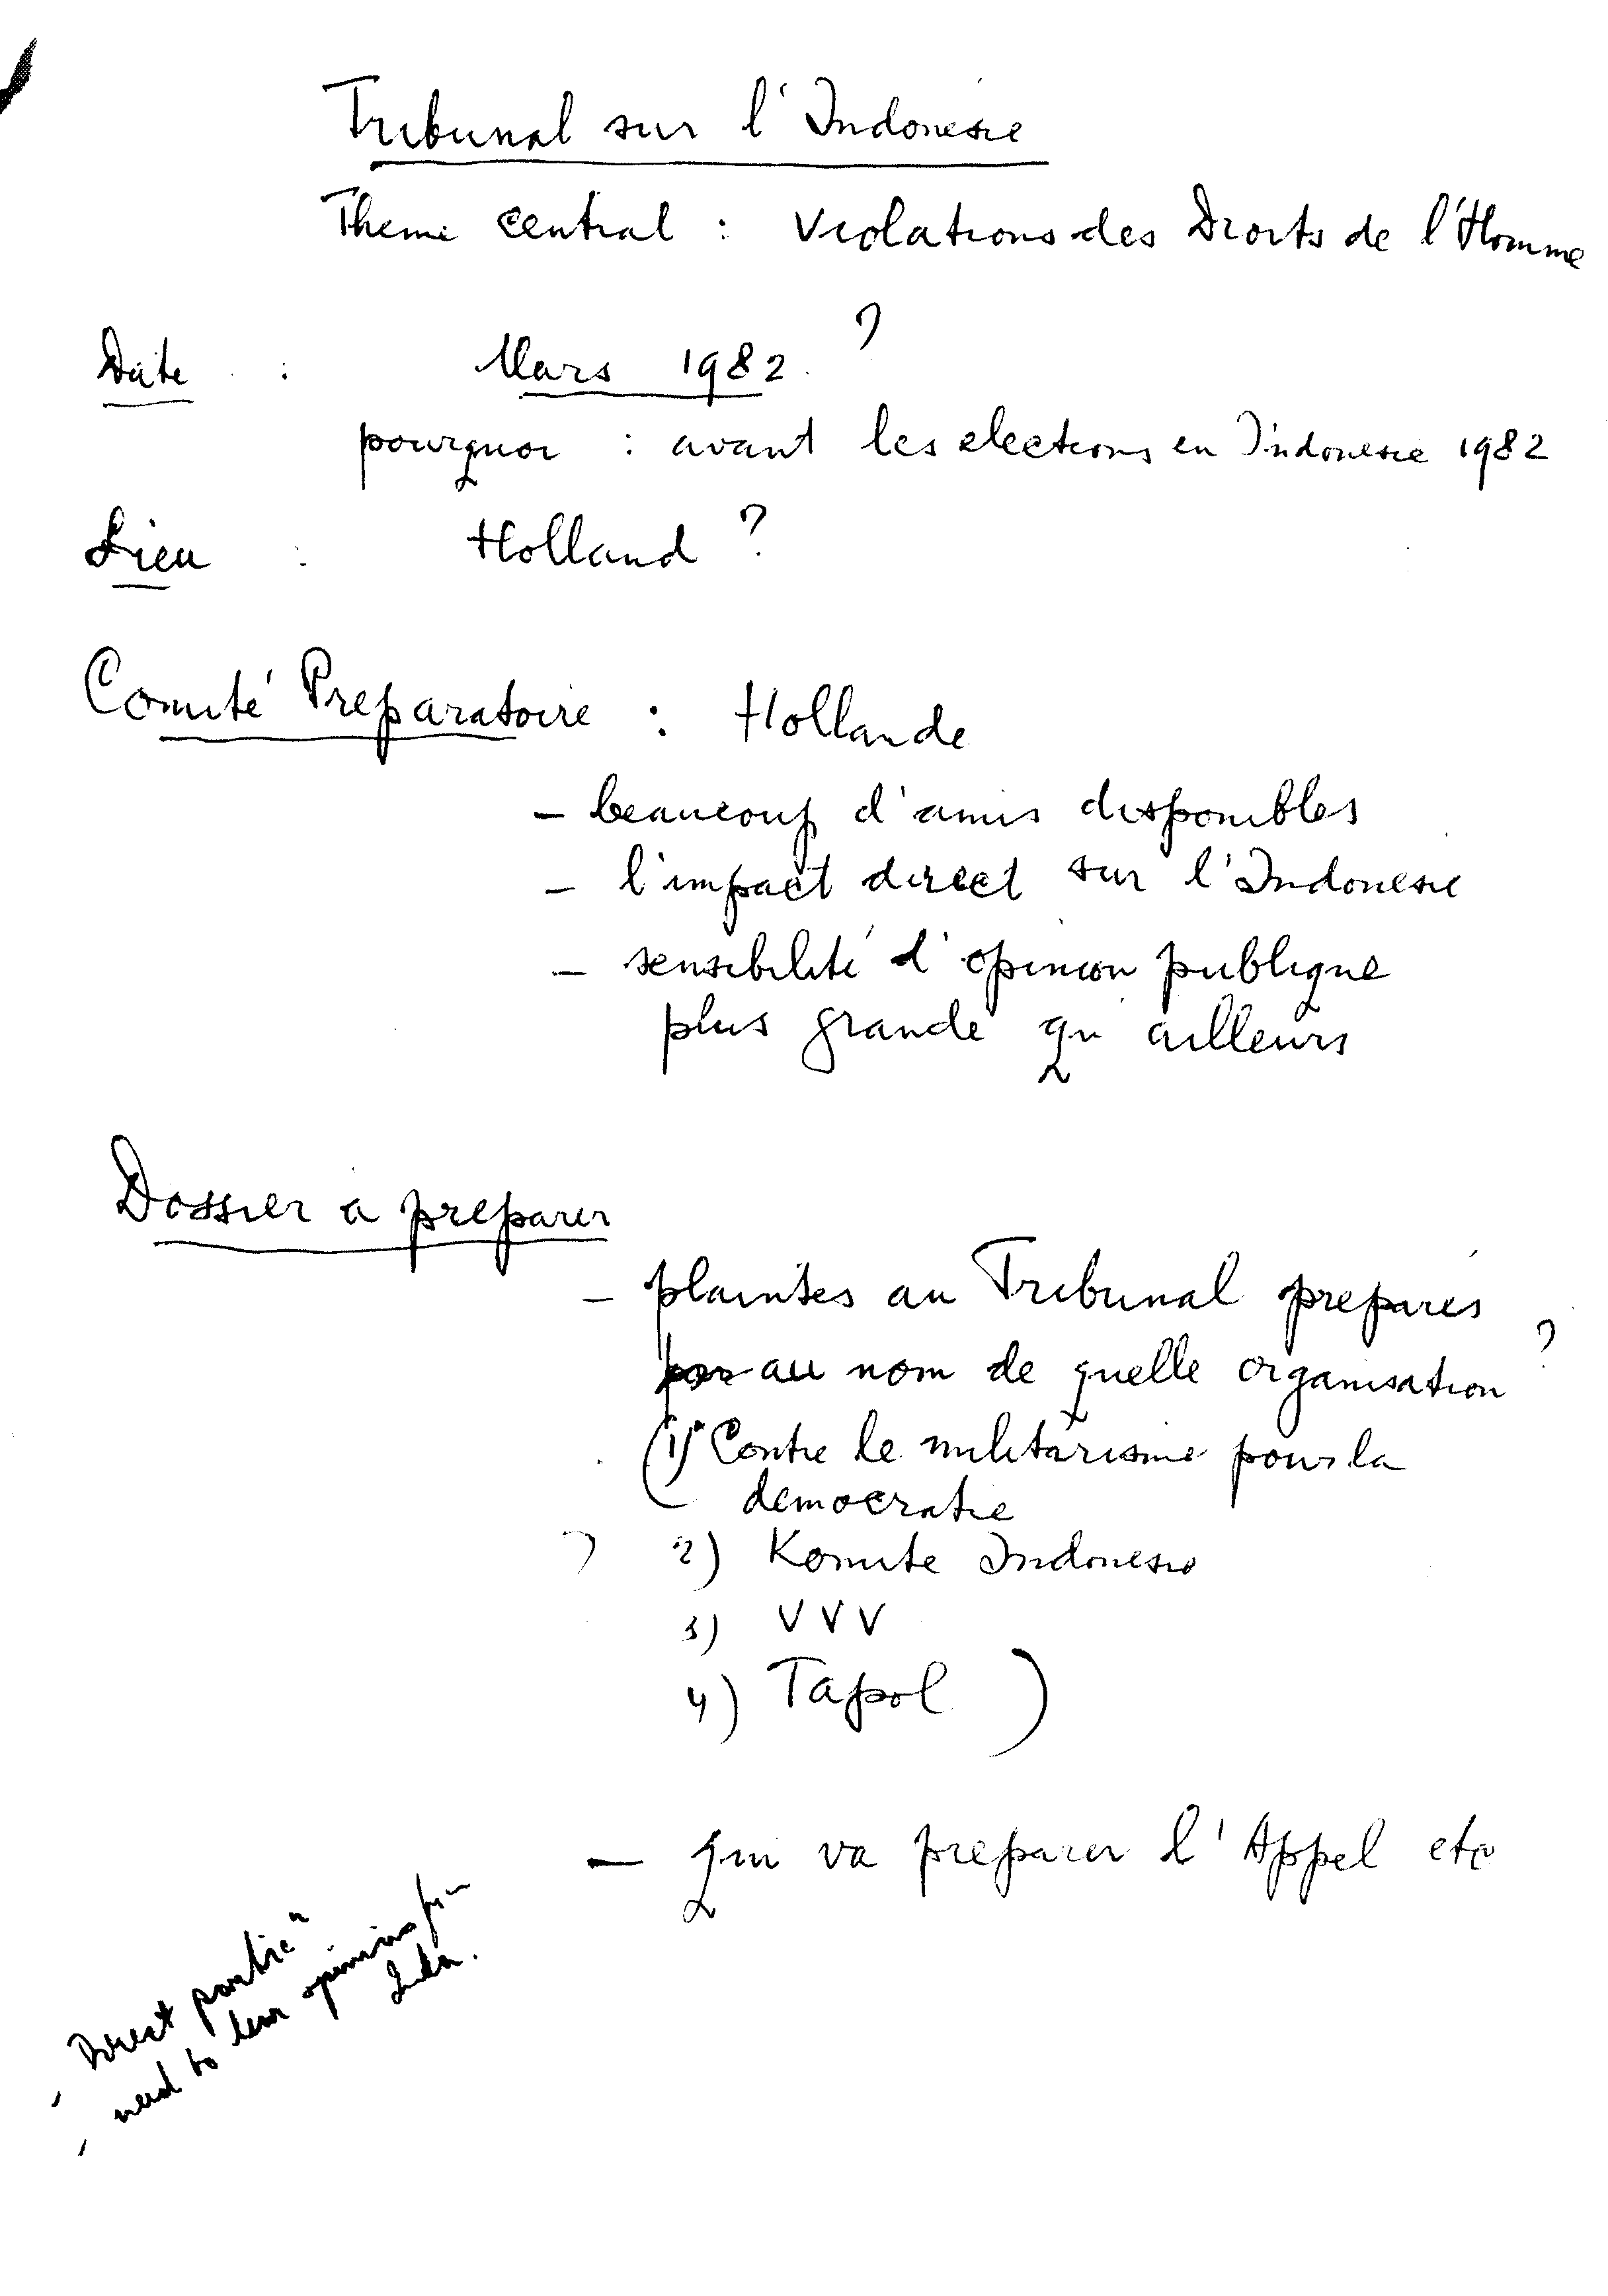 Tribunal sur l'Indonesie
Theme central : Violations des Droits de l'Homme
Date : Mars 1982 ?
pourquoi : avant les elections en Indonesie 1982
Lieu : Holland ?
Comité Preparatoire : Hollande
- beaucoup d'amis disponibles
- l'impact direct sur l'Indonesie
- sensibilité d'opinion publique
plus grande qu'ailleurs
Dossier a preparer
- plaintes au Tribunal preparés
par au nom de quelle organisation ?
(1) Contre le militarisme pour la
democratie
? 2) Komite Indonesia
3) VVV
4) Tapol )
- qui va preparer l'Appel etc
- Direct partic"
- need to hear opinions from
Indon.